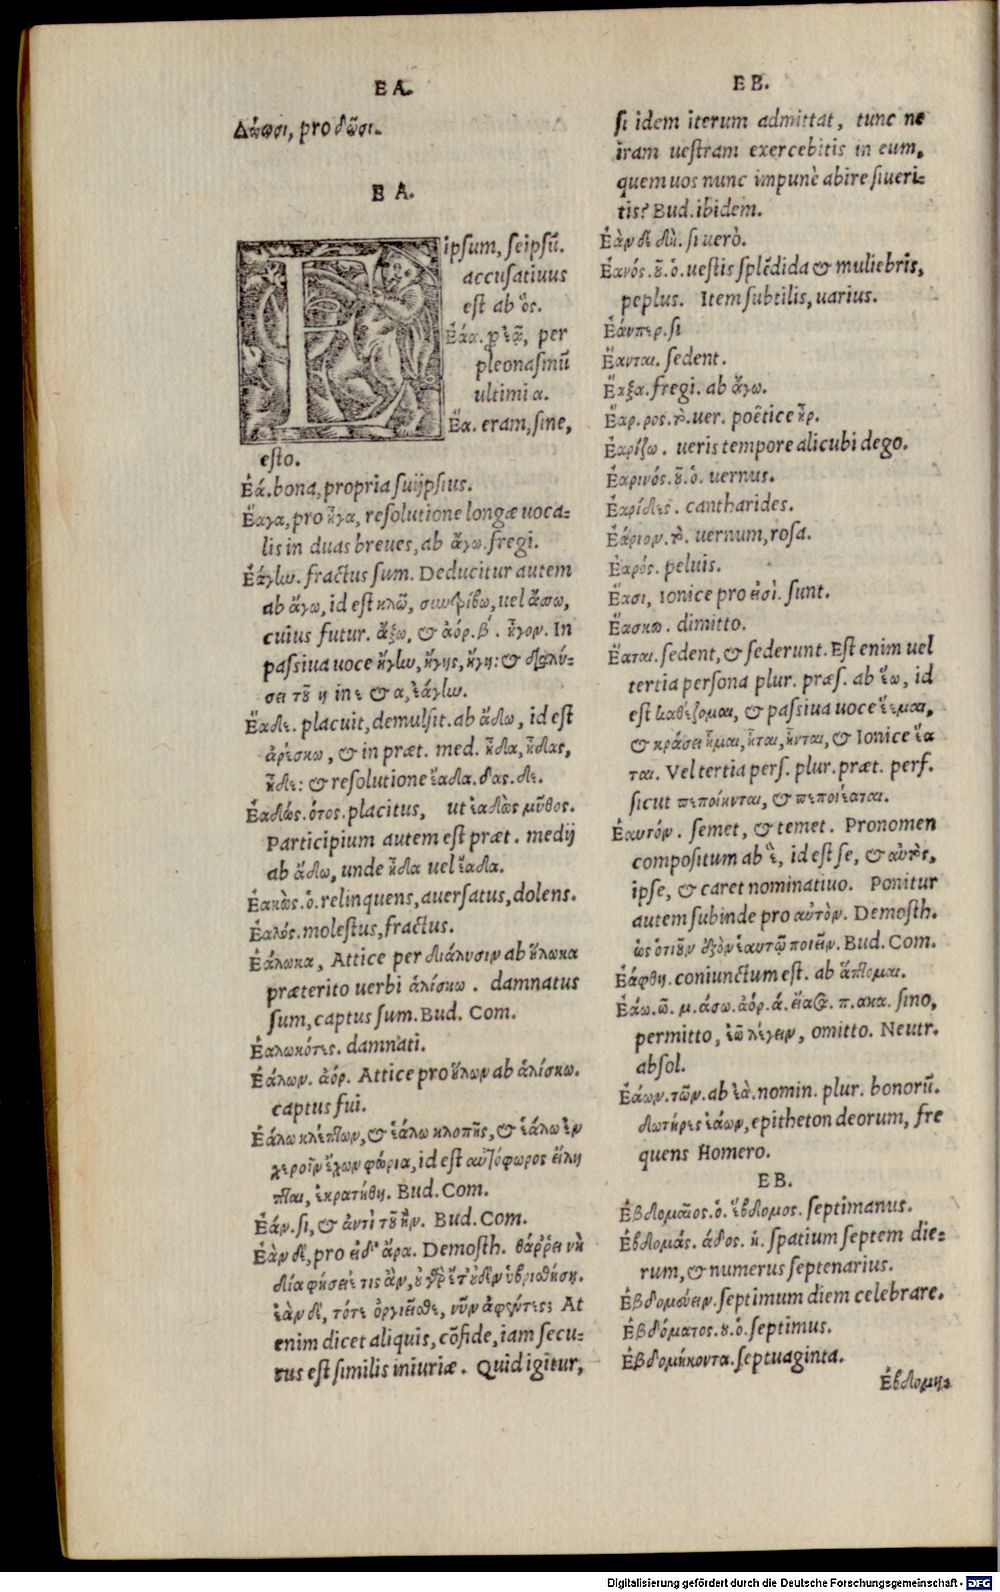 E A.
Δώωσι, pro δῶσι.
E A.
E ipsum, seipsũ.
accusatiuus
est ab ὅς.
Ἑάα. pro ἑᾶ, per
pleonasmũ
ultimi α.
Ἔα. eram, sine,
esto.
Ἐά. bona, propria suijpsius.
Ἔαγα, pro ἦγα, resolutione longæ uoca-
lis in duas breues, ab ἄγω. fregi.
Ἐάγην. fractus sum. Deducitur autem
ab ἄγω, id est κλῶ, συντρίβω, uel ἄσσω,
cuius futur. ἄξω, & ἀόρ. β´. ἦγον. In
passiua uoce ἤγην, ἤγης, ἤγη: & διαλύ-
σει τοῦ η in ε & α, ἐάγην.
Ἕαδε. placuit, demulsit. ab ἅδω, id est
ἀρέσκω, & in præt. med. ἧδα, ἧδας,
ἧδε: & resolutione ἕαδα. δας. δε.
Ἑαδώς. ότος. placitus, ut ἑαδὼς μῦθος.
Participium autem est præt. medij
ab ἅδω, unde ἧδα uel ἕαδα.
Ἑακὼς. ὁ. relinquens, auersatus, dolens.
Ἐαλός. molestus, fractus.
Ἑάλωκα, Attice per διάλυσιν ab ἥλωκα
præterito uerbi ἁλίσκω. damnatus
sum, captus sum. Bud. Com.
Ἑαλωκότες. damnati.
Ἑάλων. ἀόρ. Attice pro ἥλων ab ἁλίσκω.
captus fui.
Ἑάλω κλέπτων, & ἑάλω κλοπῆς, & ἑάλω ἐν
χεροῖν ἔχων φώρια, id est αὐτόφωρος εἴλη
πται, ἐκρατήθη. Bud. Com.
Ἐάν. si, & ἀντὶ τοῦ ἤν. Bud. Com.
Ἐὰν δέ, pro εἰ δ' ἄρα. Demosth. θάῤῥει νὴ
δία φήσειέ τις ἂν, οὐ γὰρ ἔτ' οὐδὲν ὑβρισθήσῃ.
ἐὰν δὲ, τότε ὀργιεῖσθε, νῦν ἀφέντες; At
enim dicet aliquis, cõfide, iam secu-
rus est similis iniuriæ. Quid igitur,
E B.
si idem iterum admittat, tunc ne
iram uestram exercebitis in eum,
quem uos nunc impunè abire siueri-
tis? Bud. ibidem.
Ἐὰν δὲ δὴ. si uerò.
Ἑανός. οῦ. ὁ. uestis splẽdida & muliebris,
peplus. Item subtilis, uarius.
Ἐάνπερ. si
Ἕανται. sedent.
Ἔαξα. fregi. ab ἄγω.
Ἔαρ. ρος. τὸ. uer. poëtice ἦρ.
Ἐαρίζω. ueris tempore alicubi dego.
Ἐαρινός. οῦ. ὁ. uernus.
Ἐαρίδες. cantharides.
Ἐάριον. τὸ. uernum, rosa.
Ἐαρός. peluis.
Ἔασι, Ionice pro εἰσὶ. sunt.
Ἔασκω. dimitto.
Ἕαται. sedent, & sederunt. Est enim uel
tertia persona plur. præs. ab ἕω, id
est καθέζομαι, & passiua uoce ἕεμαι,
& κράσει ἧμαι, ἧται, ἧνται, & Ionice ἕα
ται. Vel tertia pers. plur. præt. perf.
sicut πεποίηνται, & πεποιέαται.
Ἑαυτόν. semet, & temet. Pronomen
compositum ab ἓ, id est se, & αὐτὸς,
ipse, & caret nominatiuo. Ponitur
autem subinde pro αὐτὸν. Demosth.
ὡς ὁτιοῦν ἐξὸν ἑαυτῷ ποιεῖν. Bud. Com.
Ἑάφθη. coniunctum est. ab ἅπτομαι.
Ἐάω. ῶ. μ. άσω. ἀόρ. ά. εἴασα. π. ακα. sino,
permitto, ἐῶ λέγειν, omitto. Neutr.
absol.
Ἐάων. τῶν. ab ἐὰ. nomin. plur. bonorũ.
δωτῆρες ἐάων, epitheton deorum, fre
quens Homero.
E B.
Ἑβδομαῖος. ὁ. ἕβδομος. septimanus.
Ἑβδομάς. άδος. ἡ. spatium septem die-
rum, & numerus septenarius.
Ἑβδομεύειν. septimum diem celebrare.
Ἑβδόματος. ου. ὁ. septimus.
Ἑβδομήκοντα. septuaginta.
Ἑβδομη-
Digitalisierung gefördert durch die Deutsche Forschungsgemeinschaft - DFG